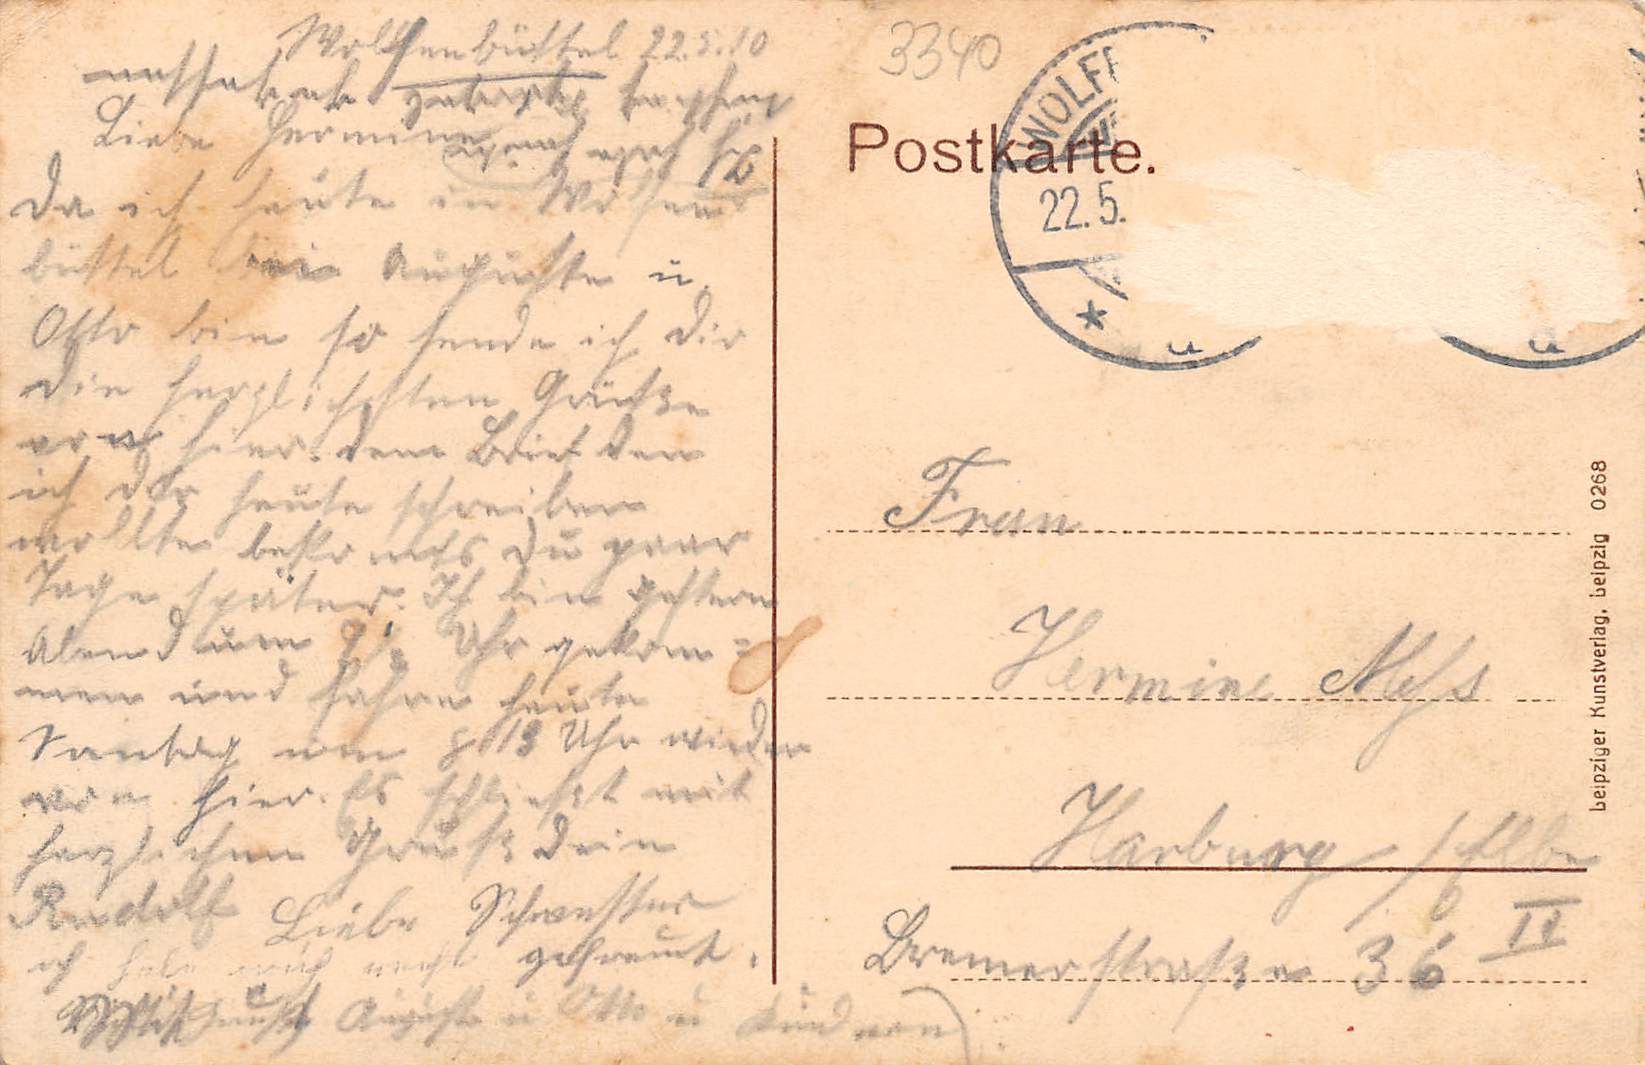 Wolfenbüttel 22.5.10
Liebe Hermine
Da ich heute in Wolfen
büttel bei Auguste u.
Otto bin so sende ich Dir
die herzlichsten Grüße
von hier. Den Brief den
ich Dir heute schreiben
wollte bekomst Du paar
Tage später. Ich bin gestern
Abend um Uhr gekom=
men und fahre heute
Sontag um Uhr wieder
von hier. Es schließt mit
herzlichem Gruß Dein
Rudolf Liebe Schwester
ich habe mich recht gefreut.
Auguste u Otto u Kinder
3340
WOLFE
22.5.
Postkarte.
Frau
Hermine
Harburg /Elbe
Bremerstraße 36 II
Leipziger Kunstverlag, Leipzig 0268